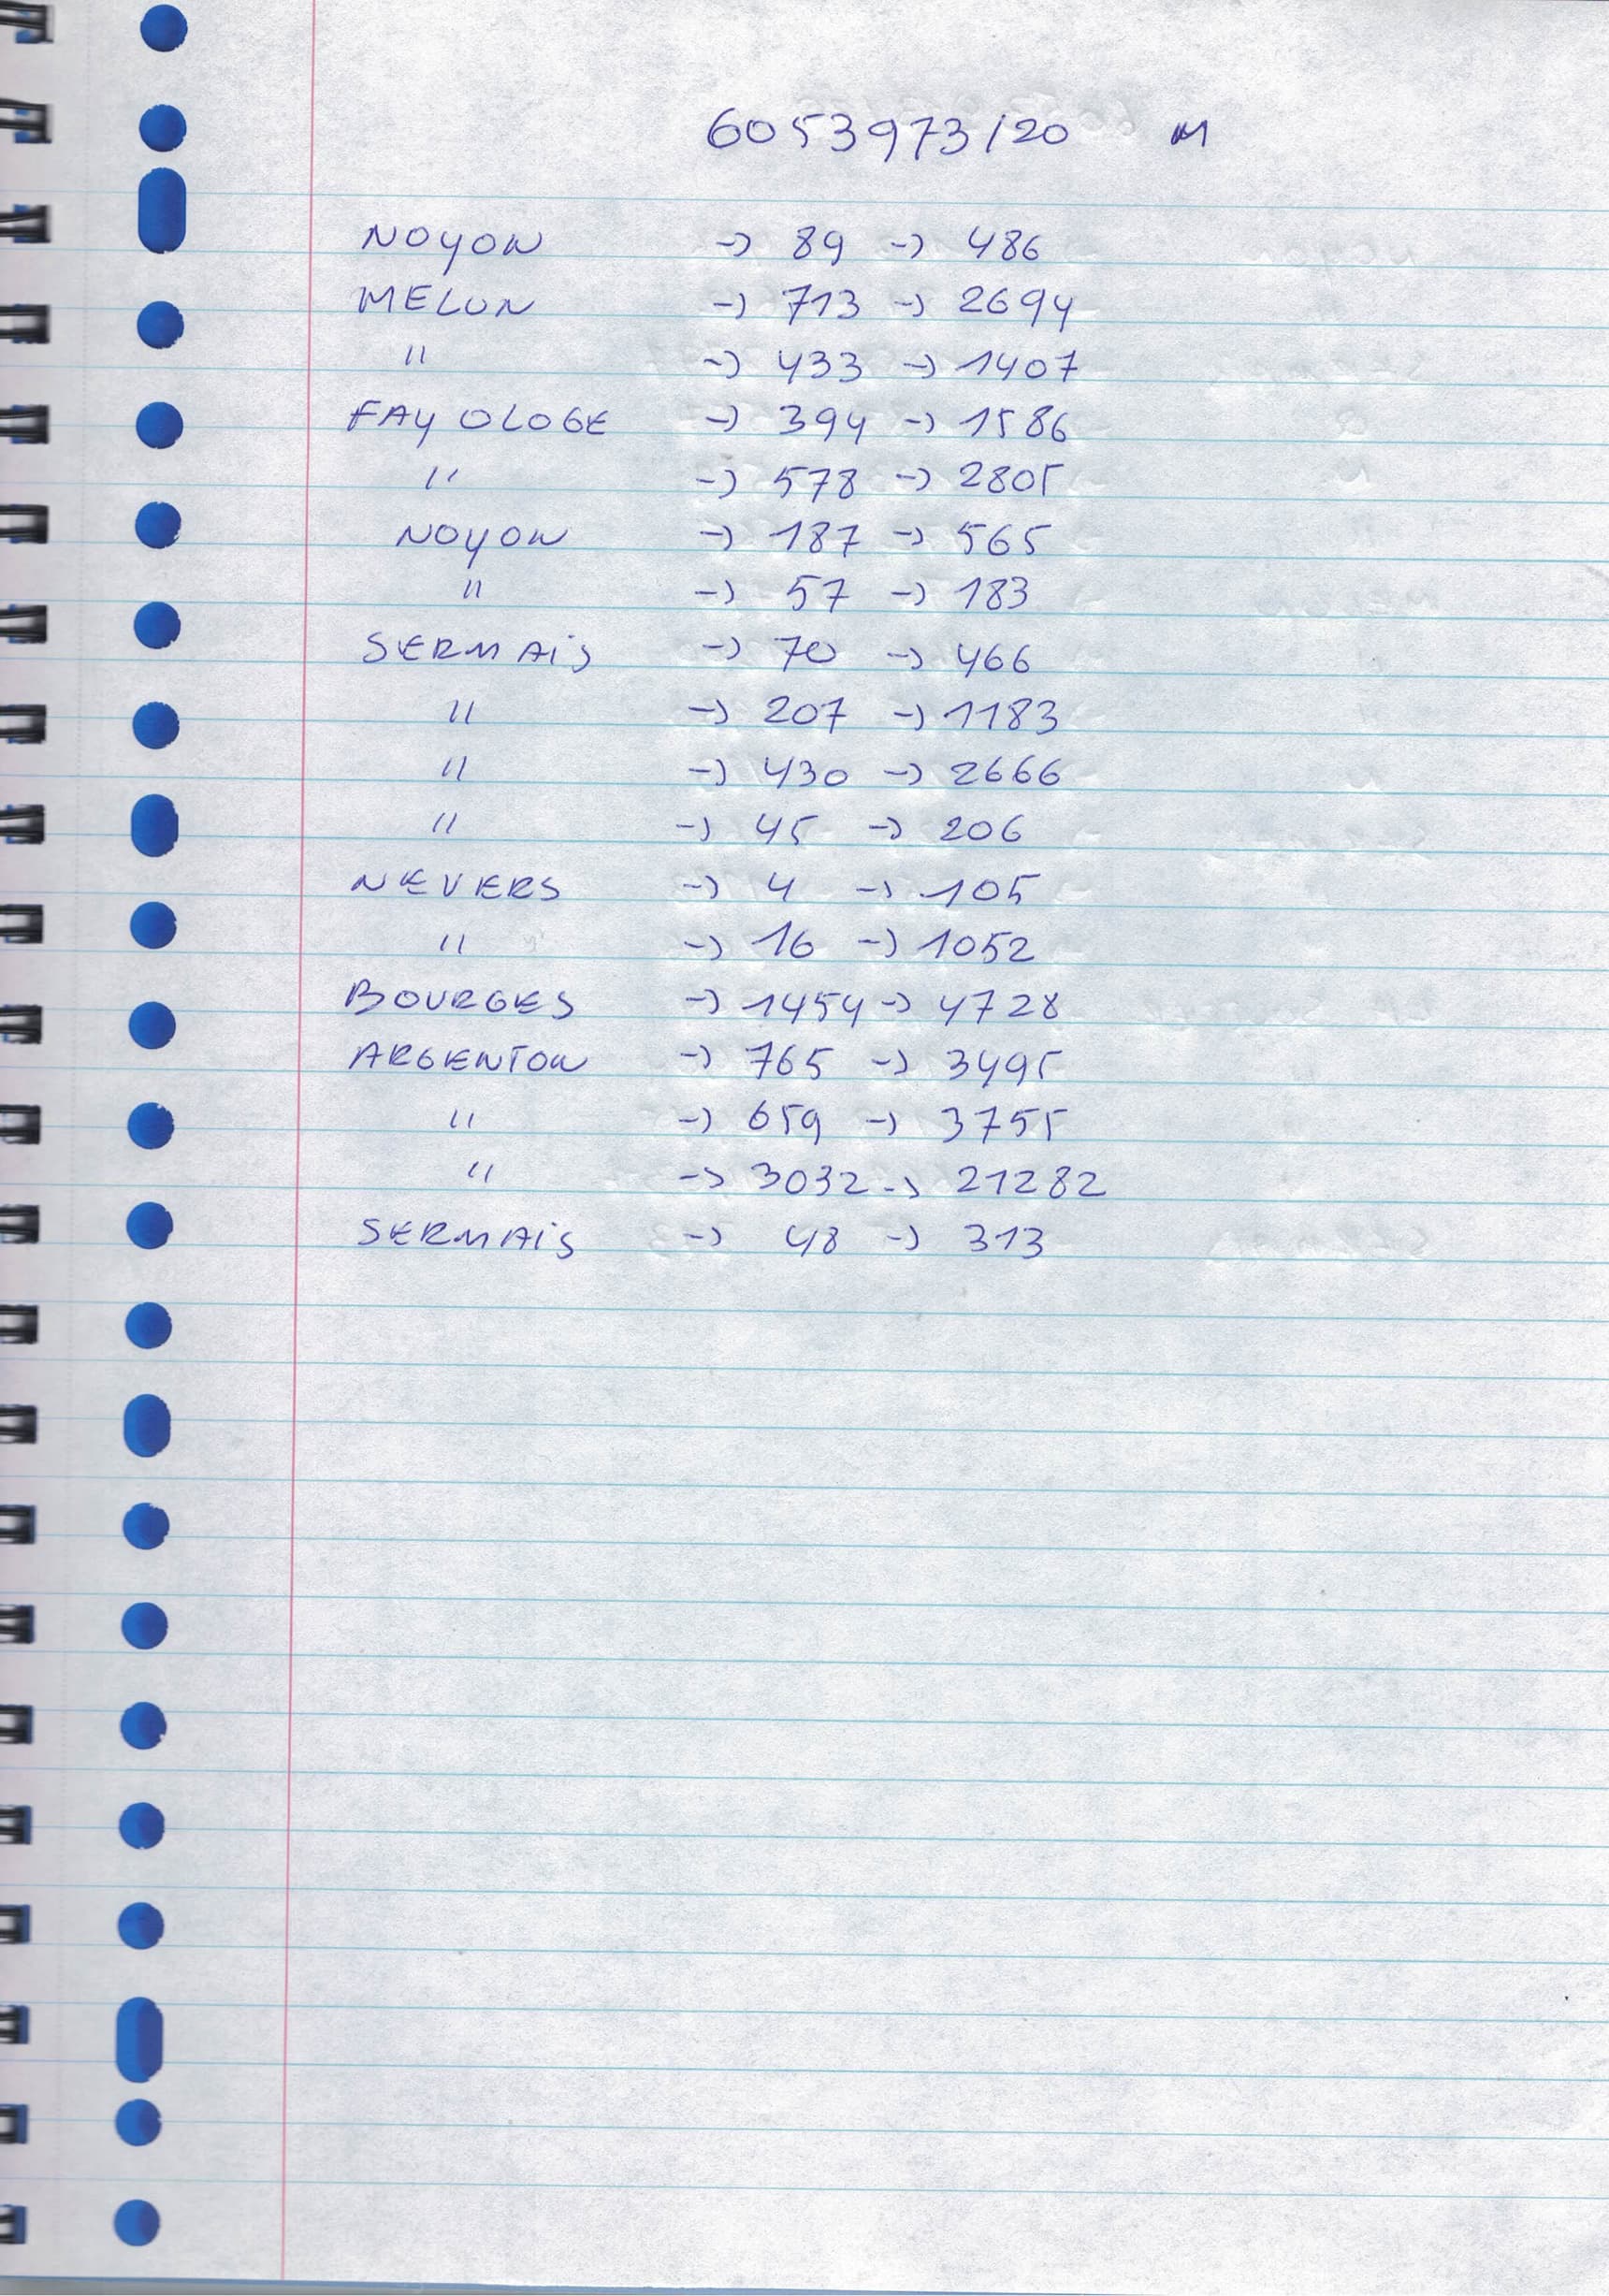 6053973/20 M
NOYON -> 89 -> 486
MELUN -> 713 -> 2694
" -> 433 -> 1407
FAY OLOGE -> 394 -> 1586
" -> 578 -> 2805
NOYON -> 187 -> 565
" -> 57 -> 183
SERMAiS -> 70 -> 466
" -> 207 -> 1183
" -> 430 -> 2666
" -> 45 -> 206
NEVERS -> 4 -> 105
" -> 16 -> 1052
BOURGES -> 1454 -> 4728
ARGENTON -> 765 -> 3495
" -> 659 -> 3755
" -> 3032 -> 21282
SERMAiS -> 48 -> 313